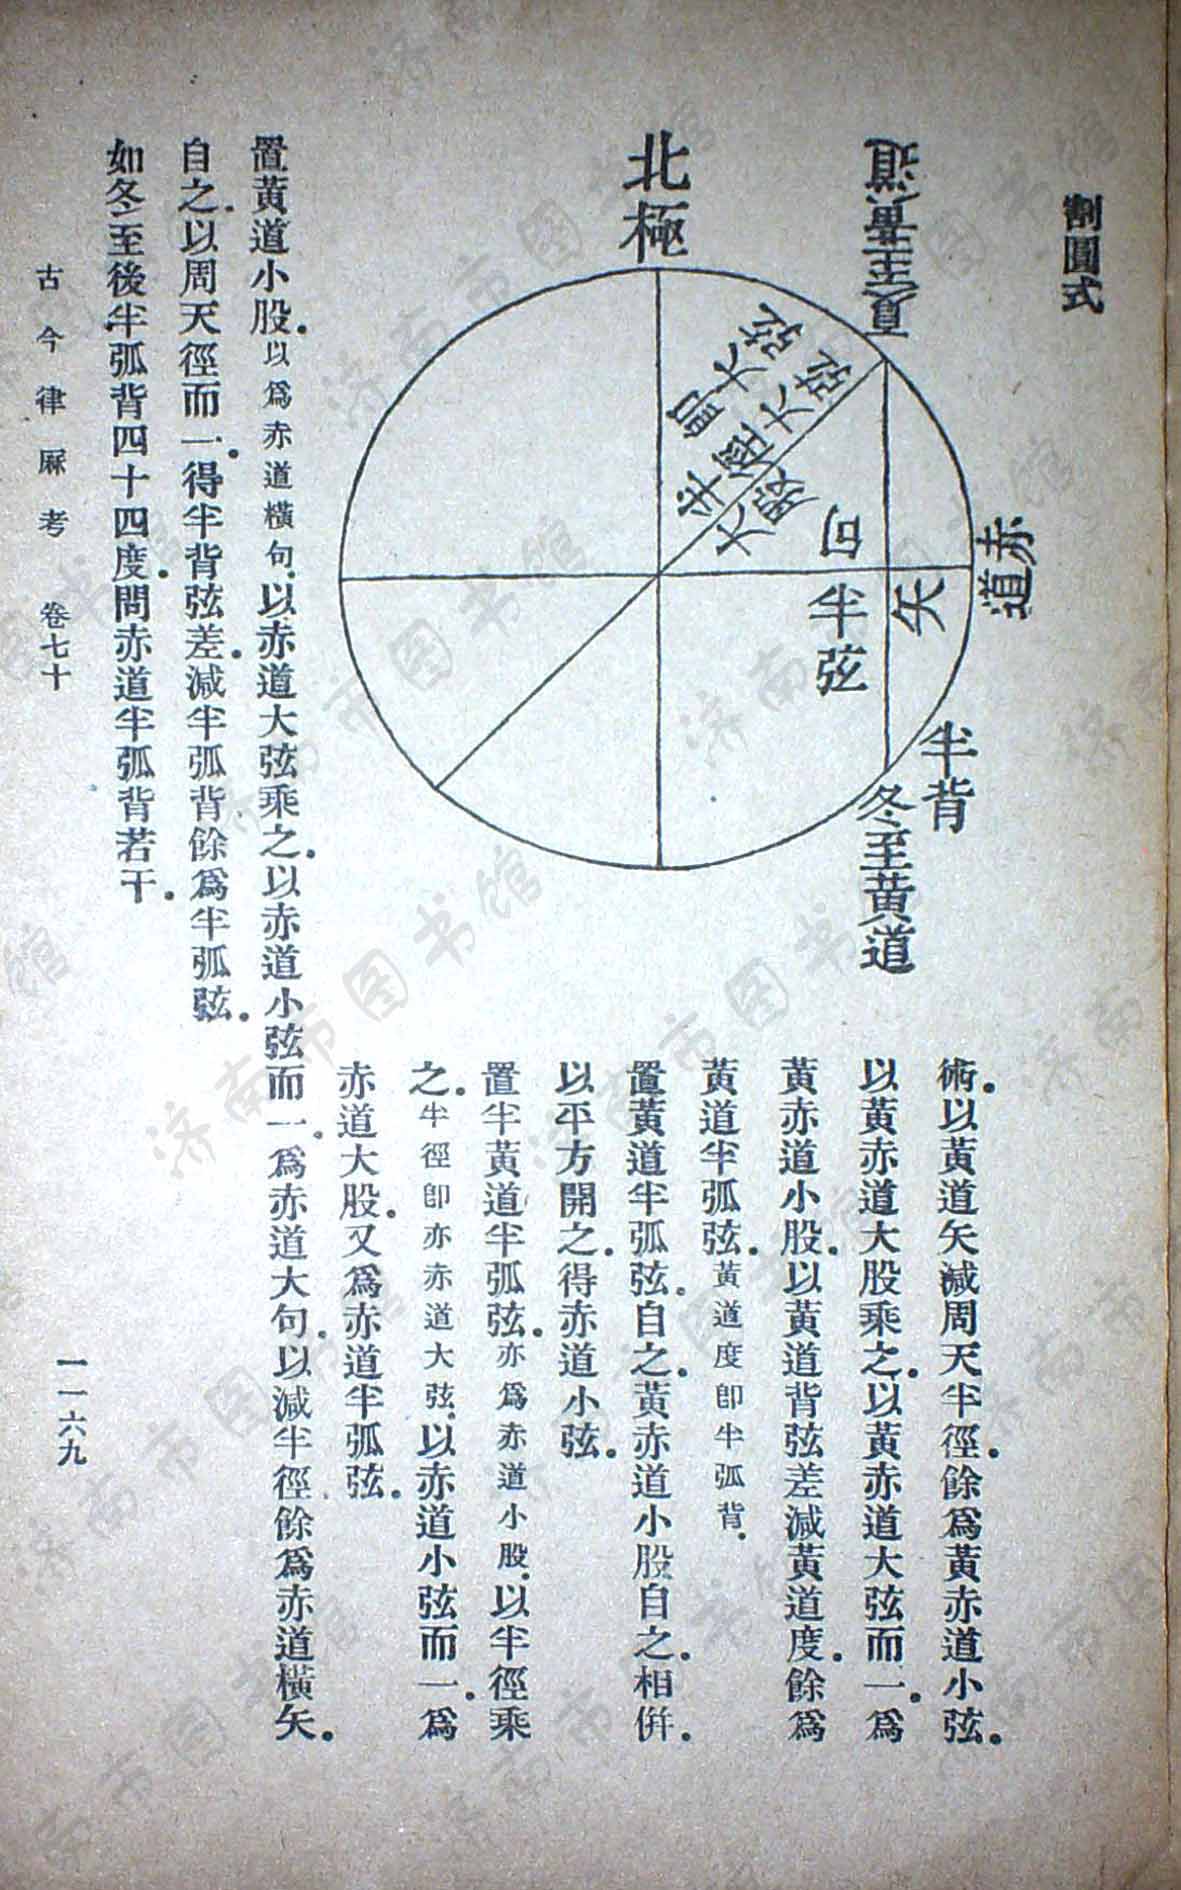 割圓式
北極
夏至黃道
半徑即大弦
大弦
大股
句
矢
赤道
半弦
半背
冬至黃道
術。以黃道矢減周天半徑。餘爲黃赤道小弦。
以黃赤道大股乘之。以黃赤道大弦而一。爲
黃赤道小股。以黃道背弦差減黃道度。餘爲
黃道半弧弦。黃道度卽半弧背。
置黃道半弧弦。自之。黃赤道小股自之。相倂。
以平方開之。得赤道小弦。
置半黃道半弧弦。亦爲赤道小股。以半徑乘
之。半徑卽亦赤道大弦。以赤道小弦而一。爲
赤道大股。又爲赤道半弧弦。
置黃道小股。以爲赤道橫句。以赤道大弦乘之。以赤道小弦而一。爲赤道大句。以減半徑餘爲赤道橫矢。
自之。以周天徑而一。得半背弦差。減半弧背餘爲半弧弦。
如冬至後半弧背四十四度。問赤道半弧背若干。
古今律厤考 卷七十 一一六九
济南市图书馆